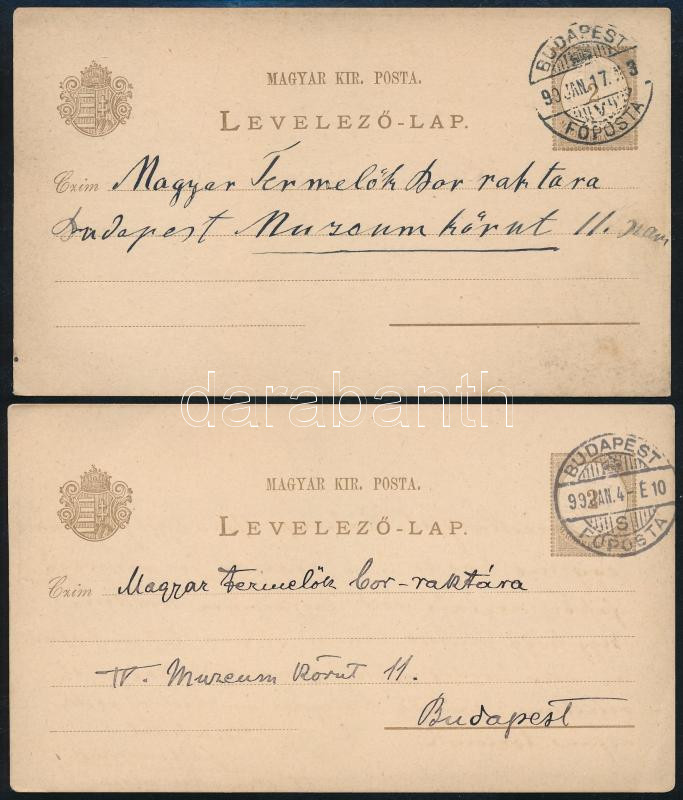 MAGYAR KIR. POSTA.
LEVELEZŐ-LAP.
BUDAPEST
99 JAN. 17.
3
2
FŐPOSTA
Czim Magyar Termelők bor raktara
Budapest Muzeum körut 11.
darabanth
MAGYAR KIR. POSTA.
LEVELEZŐ-LAP.
BUDAPEST
99 JAN. 4 - E 10
2
S
FŐPOSTA
Czim Magyar termelők bor-raktára
IV. Muzeum Körut 11.
Budapest